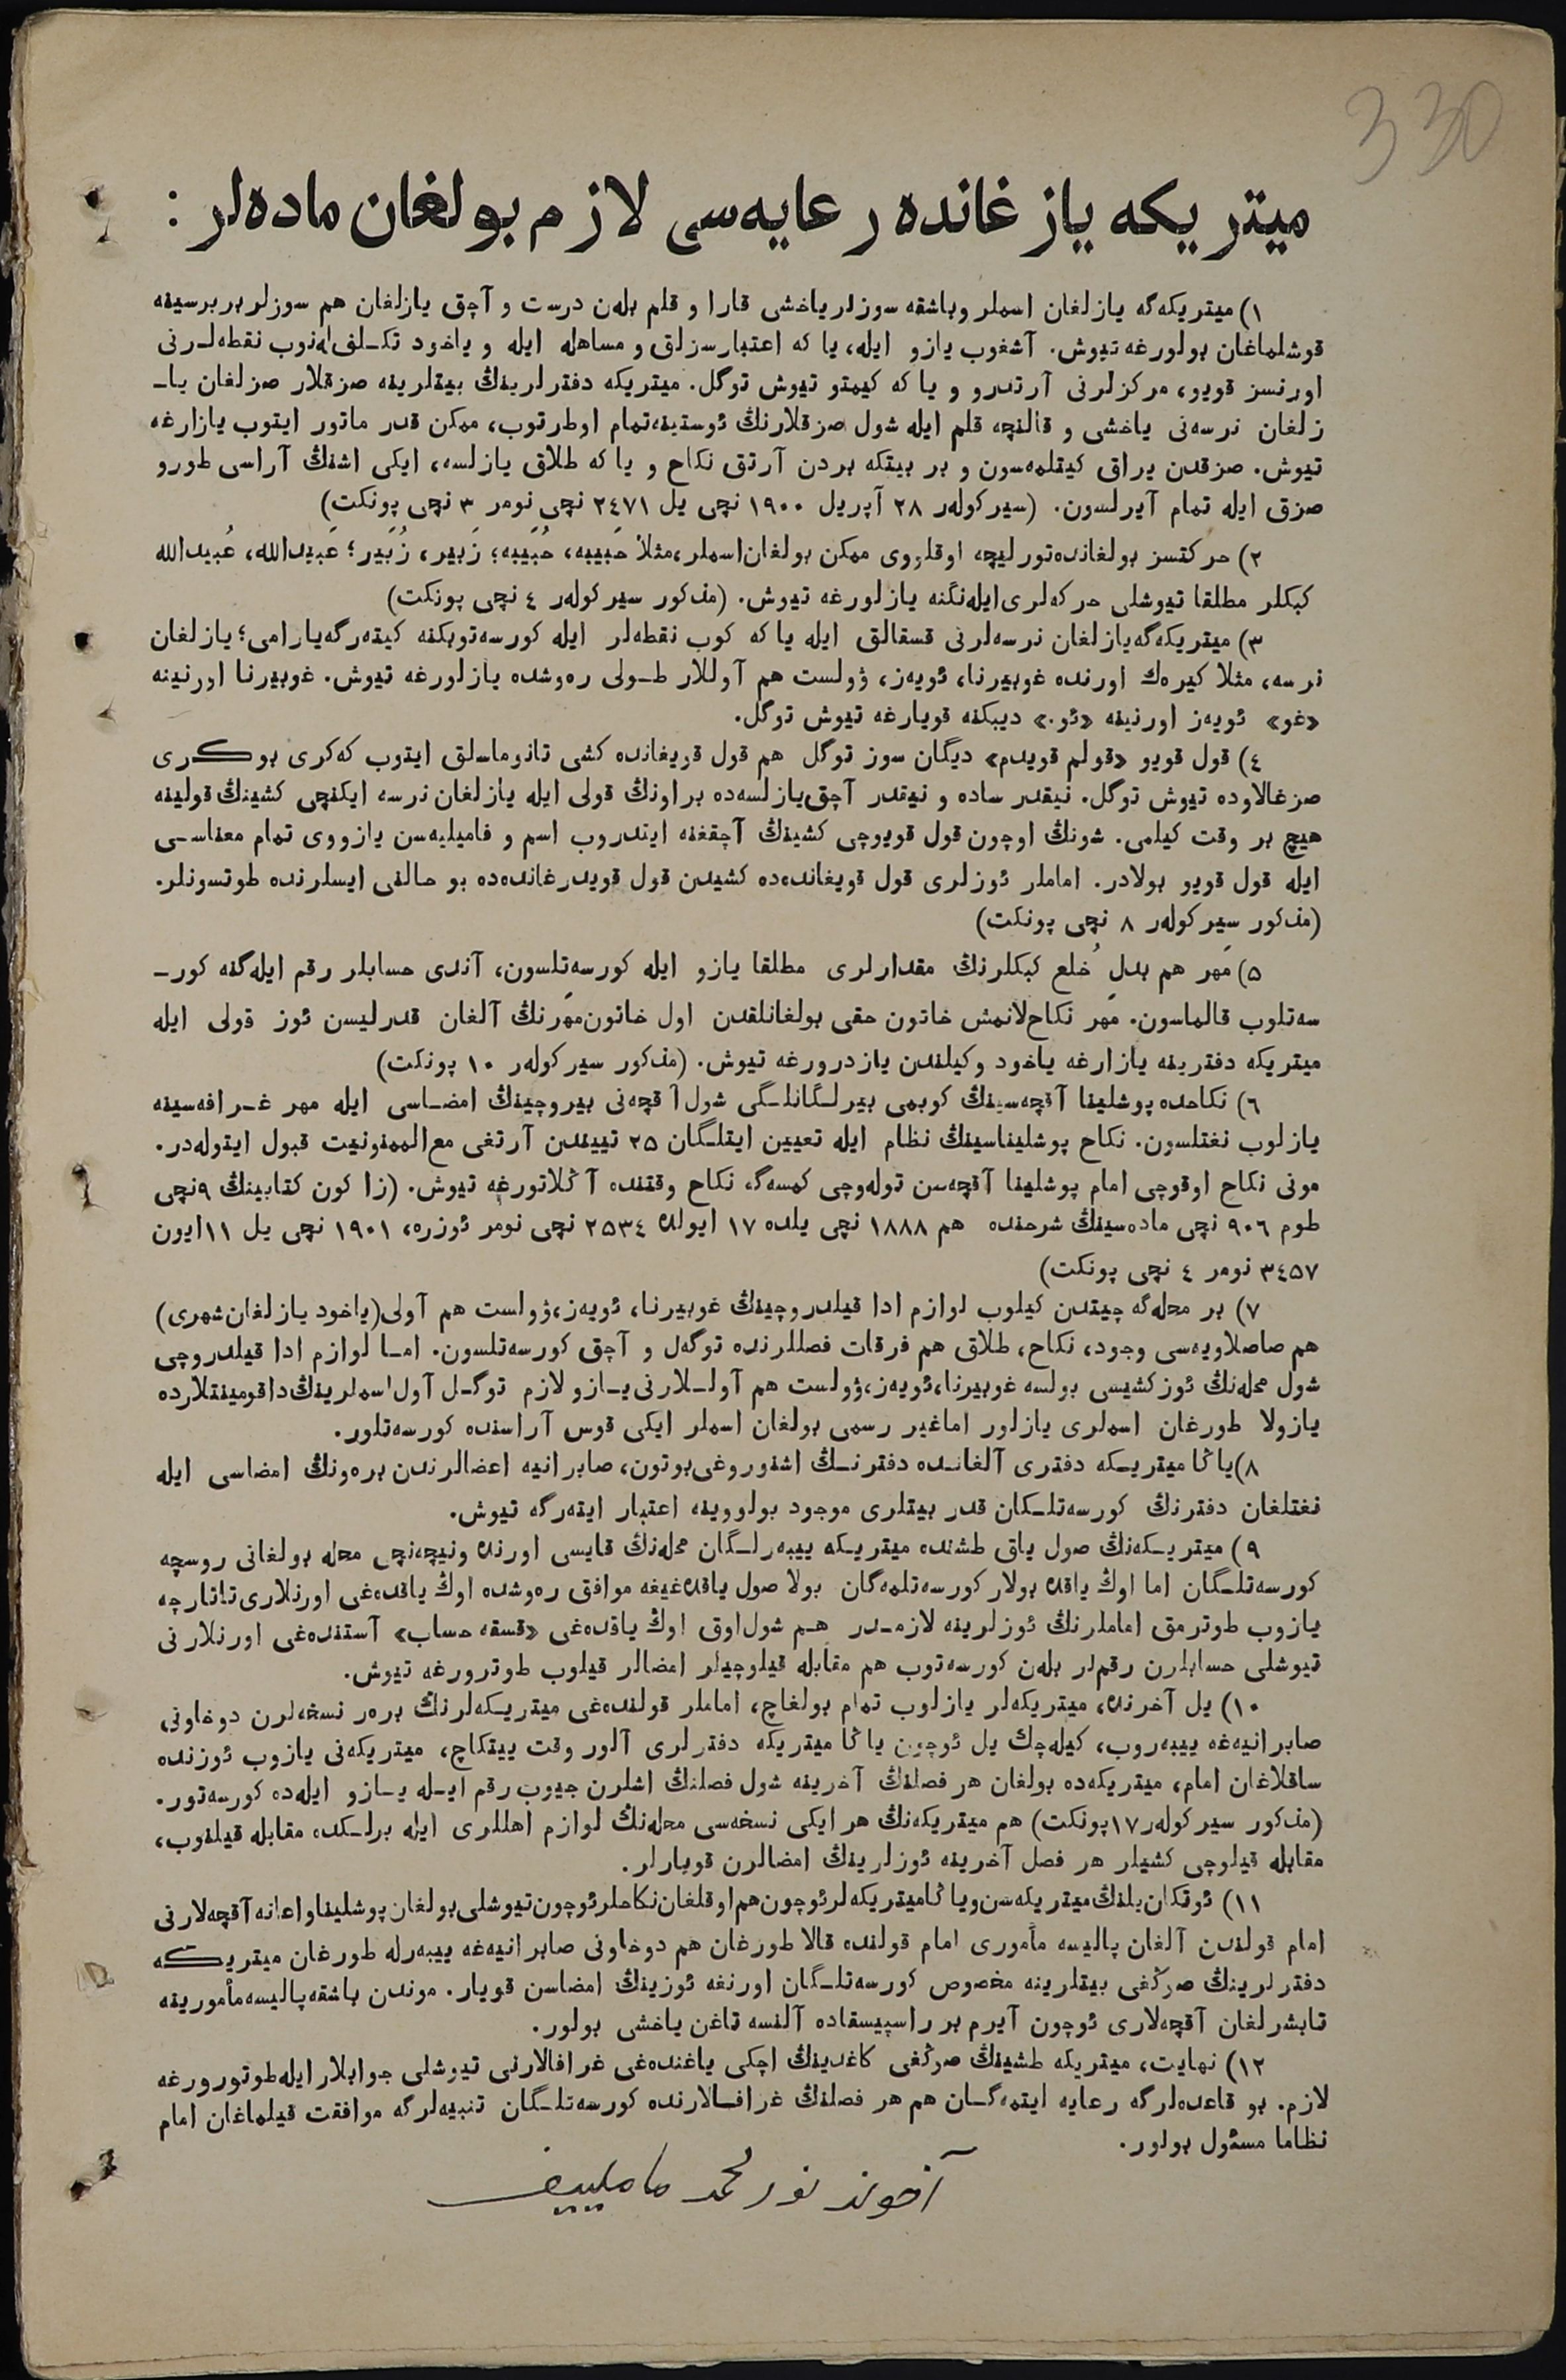 330
میتریکه یازغانده رعایه‌سی لازم بولغان ماده‌لر :
١) میتریکه‌گه یازلغان اسملر وباشقه سوزلر یاخشی قارا و قلم بله‌ن درست و آچق یازلغان هم سوزلر بربرسینه
قوشلماغان بولورغه تیوش. آشغوب یازو ایله، یا که اعتبارسزلق و مساهله ایله و یاخود تکـلفی‌له‌نوب نقطه‌لـرنی
اورنسز قویو، مرکزلرنی آرتدرو و یا که کیمتو تیوش توگل. میتریکه دفترلرینڭ بیتلرینه صزقلار صزلغان یاـ
زلغان نرسه‌نی یاخشی و قالنچه قلم ایله شول صزقلارنڭ ئوستینه‌تمام اوطرتوب، ممکن قدر ماتور ایتوب یازارغه
تیوش. صزقدن یراق کیتلمه‌سون و بر بیتکه بردن آرتق نکاح و یا که طلاق یازلسه، ایکی اشنڭ آراسی طورو
صزق ایله تمام آیرلسون. (سیرکوله‌ر ٢٨ آپریل ١٩٠٠ نچی یل ٢٤٧١ نچی نومر ٣ نچی پونکت)
٢) حرکتسز بولغانده‌تورلیچه اوقلووی ممکن بولغان‌اسملر،مثلا حَبیبه، حُبَیبه؛ زَبیر، زُبَیر؛ عَبیدالله، عُبیدالله
کبکلر مطلقا تیوشلی حرکه‌لری‌ایله‌نگنه یازلورغه تیوش. (مذکور سیرکوله‌ر ٤ نچی پونکت)
٣) میتریکه‌گه‌یازلغان نرسه‌لرنی قسقالق ایله یا که کوب نقطه‌لر ایله کورسه‌توبکنه کیته‌رگه‌یارامی؛ یازلغان
نرسه، مثلا کیره‌ك اورنده غوبیرنا، ئویه‌ز، ۋولست هم آوللار طـولی ره‌وشده یازلورغه تیوش. غوبیرنا اورنینه
«غو» ئویه‌ز اورنینه «ئو.» دیبکنه قویارغه تیوش توگل.
٤) قول قویو «قولم قویدم» دیگان سوز توگل هم قول قویغانده کشی تانوماسلق ایتوب که‌کری بوکری
صزغالاوده تیوش توگل. نیقدر ساده و نیقدر آچق‌یازلسه‌ده براونڭ قولی ایله یازلغان نرسه ایکنچی کشینڭ قولینه
هیچ بر وقت کیلمی. شونڭ اوچون قول قویوچی کشینڭ آچقغنه ایندروب اسم و فامیلیه‌سن یازووی تمام معناسـی
ایله قول قویو بولادر. اماملر ئوزلری قول قویغانده‌ده کشیدن قول قویدرغانده‌ده بو حالنی ایسلرنده طوتسونلر.
(مذکور سیرکوله‌ر ٨ نچی پونکت)
٥) مَهر هم بدلِ خُلع کبکلرنڭ مقدارلری مطلقا یازو ایله کورسه‌تلسون، آندی حسابلر رقم ایله‌گنه کورـ
سه‌تلوب قالماسون. مَهر نکاح‌لانمش خاتون حقی بولغانلقدن اول خاتون‌مَهرنڭ آلغان قدرلیسن ئوز قولی ایله
میتریکه دفترینه یازارغه یاخود وکیلندن یازدرورغه تیوش. (مذکور سیرکوله‌ر ١٠ پونکت)
٦) نکاحده پوشلینا آقچه‌سینڭ کوبمی بیرلـگانلـگی شول آقچه‌نی بیروچینڭ امضـاسی ایله مهر غـرافه‌سینه
یازلوب نغتلسون. نکاح پوشلیناسینڭ نظام ایله تعیین ایتلـگان ٢٥ تییندن آرتغی مع‌الممنونیت قبول ایتوله‌در.
مونی نکاح اوقوچی امام پوشلینا آقچه‌سن توله‌وچی کمسه‌گه نکاح وقتنده آڭلاتورغه تیوش. (زا کون کتابینڭ ٩نچی
طوم ٩٠٦ نچی ماده‌سینڭ شرحنده هم ١٨٨٨ نچی یلده ١٧ ایولده ٢٥٣٤ نچی نومر ئوزره، ١٩٠١ نچی یل ١١ایون
٣٤٥٧ نومر ٤ نچی پونکت)
٧) بر محله‌گه چیتدن کیلوب لوازم ادا قیلدروچینڭ غوبیرنا، ئویه‌ز،ۋولست هم آولی(یاخود یازلغان‌شهری)
هم صاصلاویه‌سی وجود، نکاح، طلاق هم فرقات فصللرنده توگه‌ل و آچق کورسه‌تلسون. امـا لوازم ادا قیلدروچی
شول محله‌نڭ ئوزکشیسی بولسه غوبیرنا،ئویه‌ز،ۋولست هم آولـلارنی یـازو لازم توگـل آول اسملرینڭ‌داقومینتلارده
یازولا طورغان اسملری یازلور اماغیر رسمی بولغان اسملر ایکی قوس آراسنده کورسه‌تلور.
٨)یاڭا میتریـکه دفتری آلغانـده دفترنـڭ اشنوروغی‌بوتون، صابرانیه اعضالرندن بره‌ونڭ امضاسی ایله
نغتلغان دفترنڭ کورسه‌تلـکان قدر بیتلری موجود بولووینه اعتبار ایته‌رگه تیوش.
٩) میتریـکه‌نڭ صول یاق طشنده میتریـکه ییبه‌رلـگان محله‌نڭ قایسی اورنده ونیچه‌نچی محله بولغانی روسچه
کورسه‌تلـگان اما اوڭ یاقده بولار کورسه‌تلمه‌گان بولا صول یاقده‌غیغه موافق ره‌وشده اوڭ یاقده‌غی اورنلاری‌تاتارچه
یازوب طوترمق اماملرنڭ ئوزلرینه لازمـدر هـم شول‌اوق اوڭ یاقده‌غی «قسقه حساب» آستنده‌غی اورنلارنی
تیوشلی حسابلرن رقملر بله‌ن کورسه‌توب هم مقابله قیلوچیلر امضالر قیلوب طوترورغه تیوش.
١٠) یل آخرنده، میتریکه‌لر یازلوب تمام بولغاچ، اماملر قولنده‌غی میتریـکه‌لرنڭ بره‌ر نسخه‌لرن دوخاونی
صابرانیه‌غه ییبه‌روب، کیله‌چك یل ئوچون یاڭا میتریکه دفترلری آلور وقت ییتکاچ، میتریکه‌نی یازوب ئوزنده
ساقلاغان امام، میتریکه‌ده بولغان هر فصلنڭ آخرینه شول فصلنڭ اشلرن جیوب رقم ایـله یـازو ایله‌ده کورسه‌تور.
(مذکور سیرکوله‌ر١٧پونکت) هم میتریکه‌نڭ هر ایکی نسخه‌سی محله‌نڭ لوازم اهللری ایله برلـکده مقابله قیلنوب،
مقابله قیلوچی کشیلر هر فصل آخرینه ئوزلرینڭ امضالرن قویارلر.
١١) ئوتکان‌یلنڭ‌میتریکه‌سن‌ویاڭامیتریکه‌لرئوچون‌هم‌اوقلغان‌نکاحلرئوچون‌تیوشلی‌بولغان‌پوشلیناواعانه‌آقچه‌لارنی
امام قولندن آلغان پالیسه مأموری امام قولنده قالا طورغان هم دوخاونی صابرانیه‌غه ییبه‌رله طورغان میتریکه
دفترلرینڭ صوڭغی بیتلرینه مخصوص کورسه‌تلـگان اورنغه ئوزینڭ امضاسن قویار. موندن باشقه‌پالیسه‌مأمورینه
تابشرلغان آقچه‌لاری ئوچون آیرم بر راسپیسقاده آلنسه تاغن یاخشی بولور.
١٢) نهایت، میتریکه طشینڭ صوڭغی کاغدینڭ اچکی یاغنده‌غی غرافالارنی تیوشلی جوابلار ایله‌طوتورورغه
لازم. بو قاعده‌لرگه رعایه ایتمه‌گـان هم هر فصلنڭ غرافـالارنده کورسه‌تلـگان تنبیه‌لرگه موافقت قیلماغان امام
نظاما مسئول بولور.
آخوند نورمحمد ماملییف